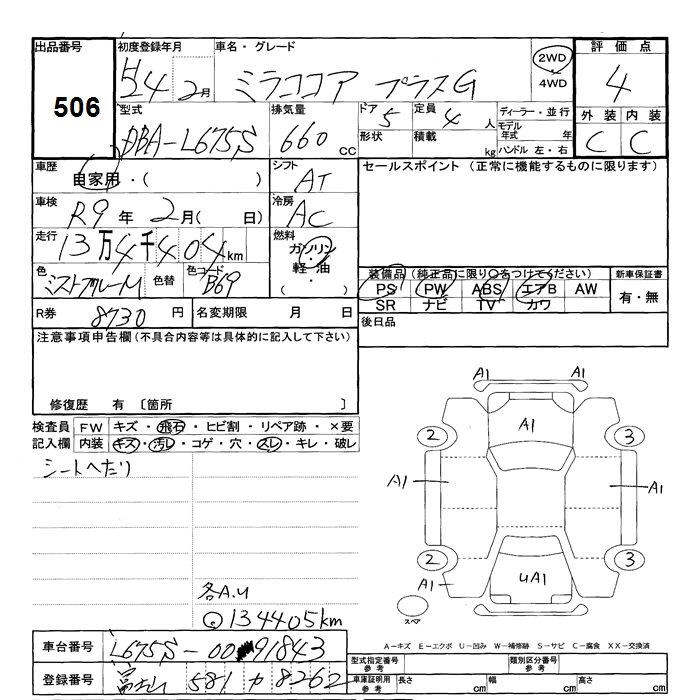 出品番号 初度登録年月 車名・グレード 2WD 4WD 評価点
506 H24 2月 ミラココア プラスG 4
型式 排気量 ドア 5 定員 4人 ディーラー・並行 外装 内装
DBA-L675S 660 CC 形状 積載 kg モデル年式 年 ハンドル 左・右 C C
車歴 自家用・( ) シフト AT セールスポイント (正常に機能するものに限ります)
車検 R9年 2月( 日) 冷房 AC
走行 13万4千404km 燃料 ガソリン・軽・油・( )
色 ミストブルーM 色替 色コード B69 装備品 (純正品に限り○をつけてください) 新車保証書
PS PW ABS エアB AW 有・無
SR ナビ TV カワ
R券 8730 円 名変期限 月 日 後日品
注意事項申告欄(不具合内容等は具体的に記入して下さい)
修復歴 有 〔箇所 〕
検査員記入欄 FW キズ・飛石・ヒビ割・リペア跡・×要
内装 キズ・汚レ・コゲ・穴・スレ・キレ・破レ
シートヘタリ
各A.U
134405km
A1 A1
A1
2 3
A1 A1
2 3
A1 UA1
スペア
A-キズ E-エクボ U-凹み W-補修跡 S-サビ C-腐食 XX-交換済
車台番号 L675S-0091843
登録番号 富士山 581 カ 8262
型式指定番号 参考 類別区分番号 参考
車庫証明用 参考 長さ cm 幅 cm 高さ cm